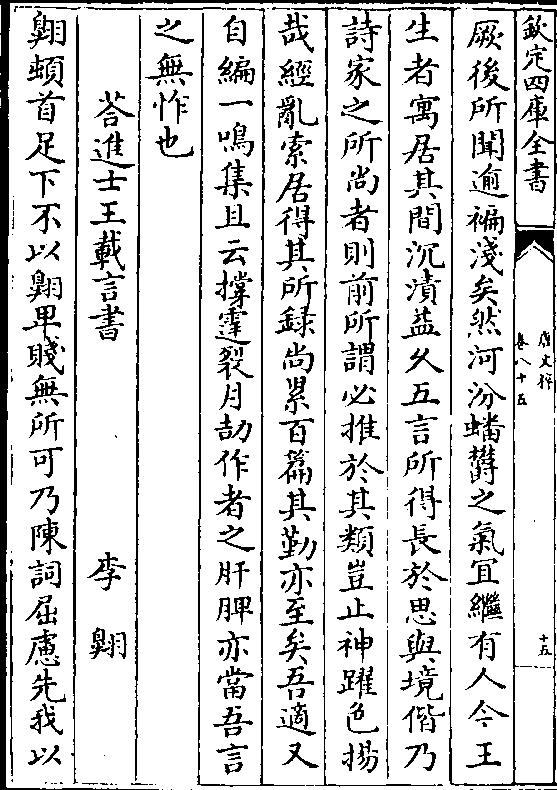 欽定四庫全書
唐文粹
卷八十五
十五
厥後所聞逾褊淺矣然河汾蟠欝之氣宜繼有人今王
生者寓居其間沉漬益久五言所得長於思與境偕乃
詩家之所尚者則前所謂必推於其類豈止神躍色揚
哉經亂索居得其所録尚累百篇其勤亦至矣吾適又
自編一鳴集且云撑霆裂月劼作者之肝脾亦當吾言
之無怍也
荅進士王載言書 李翺
翺頓首足下不以翺卑賤無所可乃陳詞屈慮先我以